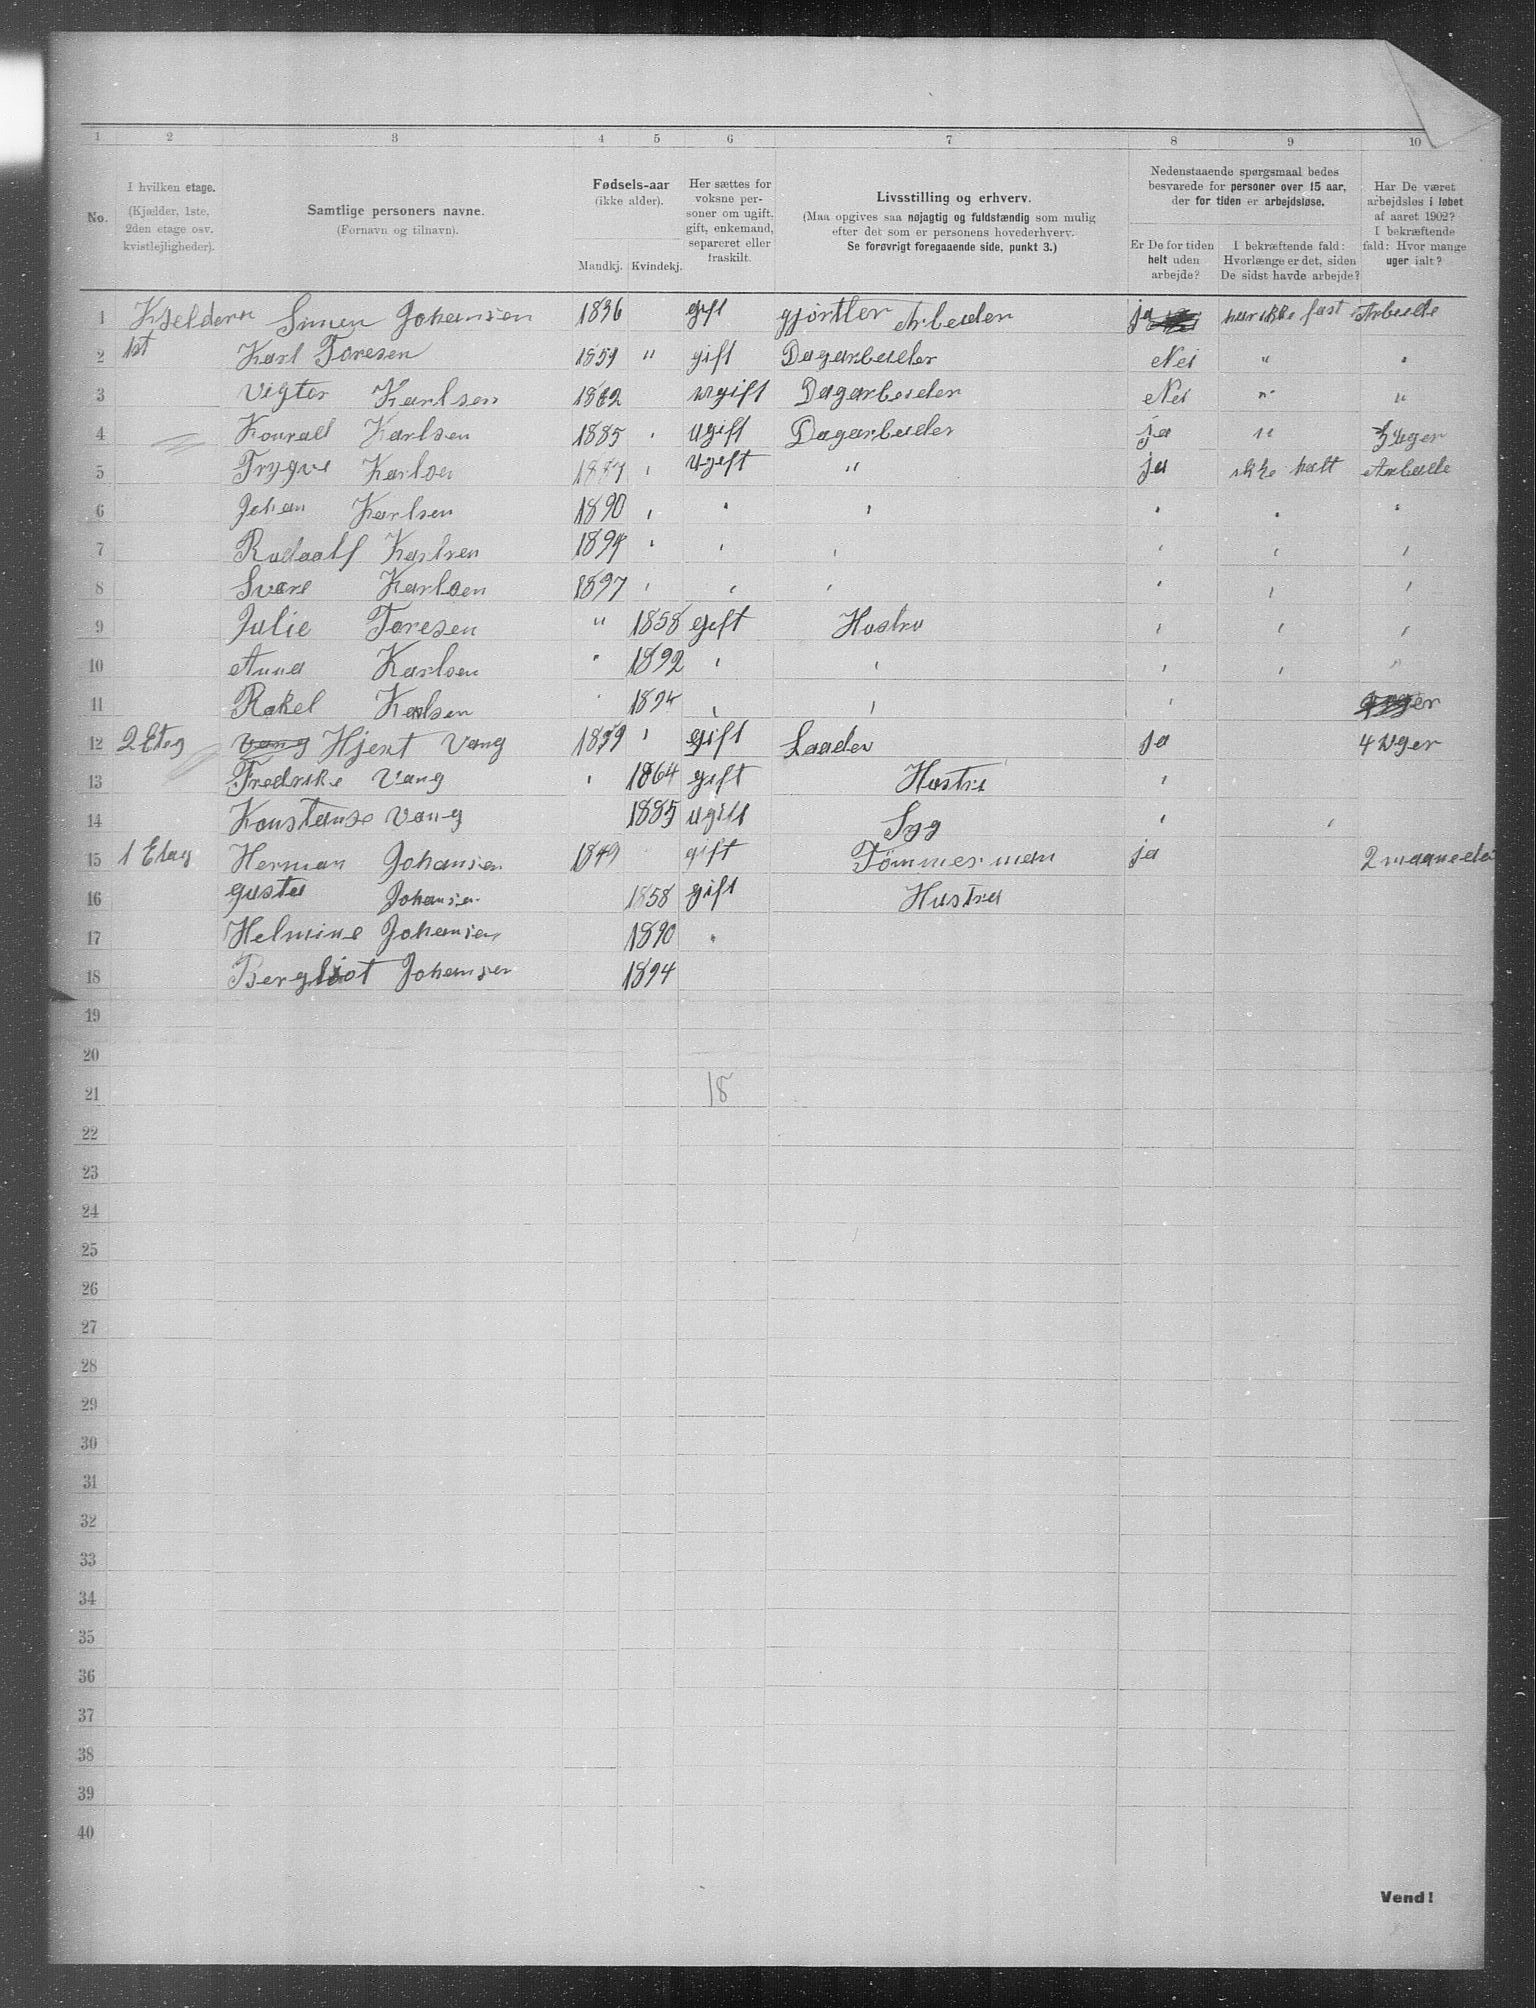 1 2 3 4 5 6 7 8 9 10
No.
I hvilken etage.
(Kjælder, 1ste,
2den etage osv.
kvistlejligheder).
Samtlige personers navne.
(Fornavn og tilnavn).
Fødsels-aar
(ikke alder).
Mandkj. Kvindekj.
Her sættes for
voksne per-
soner om ugift,
gift, enkemand,
separeret eller
fraskilt.
Livsstilling og erhverv.
(Maa opgives saa nøjagtig og fuldstændig som mulig
efter det som er personens hovederhverv.
Se forøvrigt foregaaende side, punkt 3.)
Nedenstaaende spørgsmaal bedes
besvarede for personer over 15 aar,
der for tiden er arbejdsløse.
Er De for tiden
helt uden
arbejde?
I bekræftende fald:
Hvorlænge er det, siden
De sidst havde arbejde?
Har De været
arbejdsløs i løbet
af aaret 1902?
I bekræftende
fald: Hvor mange
uger ialt?
1 Kjeldern Simen Johansen 1836 gift gjørtler Arbeider ja har ikke fast Arbeide
2 1st Karl Toresen 1859 " gift Dagarbeider Nei " "
3 Vigter Karlsen 1882 ugift Dagarbeider Nei " "
4 Konrad Karlsen 1885 " ugift Dagarbeider ja " 3 uger
5 Trygve Karlsen 1887 " ugift " ja ikke halt Arbeide
6 Johan Karlsen 1890 " " " " " "
7 Rudaalf Karlsen 1894 " " " " " "
8 Svare Karlsen 1897 " " " " " "
9 Julie Toresen " 1858 gift Hustru " " "
10 Anna Karlsen " 1892 " " " " "
11 Rakel Karlsen " 1894 " " "
12 2 Etag Vang Hjert Vang 1859 " gift Laader ja 4 Uger
13 Fredrike Vang " 1864 gift Hustru "
14 Konstanse Vang 1885 ugift Syg " "
15 1 Etag Herman Johansen 1849 gift Tømmerman ja 2 maaneder
16 gusta Johansen 1858 gift Hustru
17 Helmine Johansen 1890 "
18 Bergliot Johansen 1894
19
20
21 18
22
23
24
25
26
27
28
29
30
31
32
33
34
35
36
37
38
39
40
Vend!